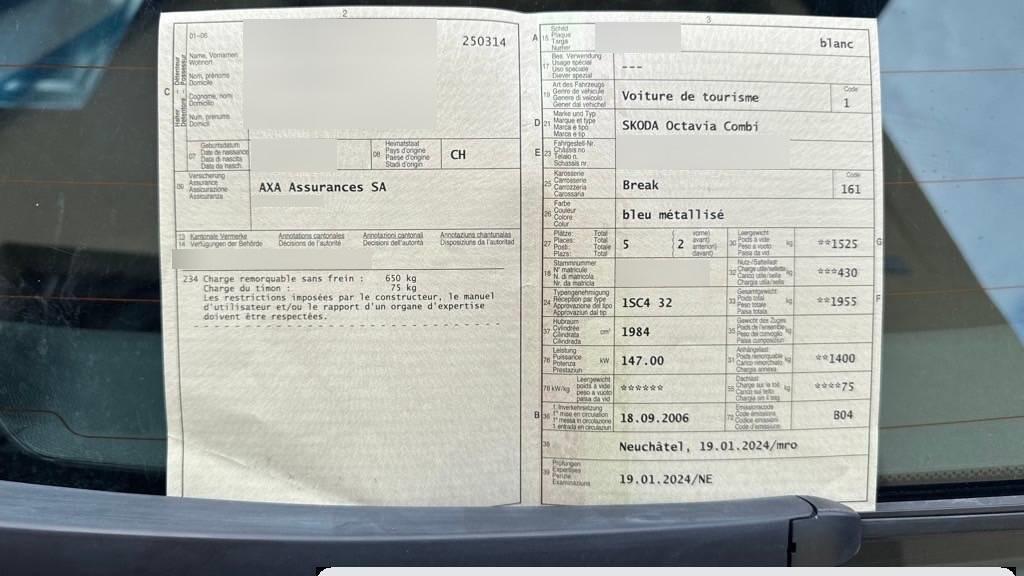 2
01-06
250314
Détenteur Possessur
Halter Détentore
C
Name, Vornamen
Wohnort
Nom, prénoms
Domicile
Cognome, nomi
Domicilio
Num, prenums
Domicil
07
Geburtsdatum
Date de naissance
Data di nascita
Data da nasch.
08
Heimatstaat
Pays d'origine
Paese d'origine
Stadi d'origin
CH
09
Versicherung
Assurance
Assicurazione
Assicuranza
AXA Assurances SA
13 Kantonale Vermerke
14 Verfügungen der Behörde
Annotations cantonales
Décisions de l'autorité
Annotazioni cantonali
Decisioni dell'autorità
Annotaziuns chantunalas
Disposiziuns da l'autoritad
234 Charge remorquable sans frein : 650 kg
Charge du timon : 75 kg
Les restrictions imposées par le constructeur, le manuel
d'utilisateur et/ou le rapport d'un organe d'expertise
doivent être respectées.
3
A 15
Schild
Plaque
Targa
Numer
blanc
17
Bes. Verwendung
Usage spécial
Uso speciale
Diever spezial
---
19
Art des Fahrzeugs
Genre de véhicule
Genere di veicolo
Gener dal vehichel
Voiture de tourisme
Code
1
D 21
Marke und Typ
Marque et type
Marca e tipo
Marca e tip
SKODA Octavia Combi
E 23
Fahrgestell-Nr.
Châssis no
Telaio n.
Schassis nr.
25
Karosserie
Carrosserie
Carrozzeria
Carossaria
Break
Code
161
26
Farbe
Couleur
Colore
Colur
bleu métallisé
27
Plätze: Total
Places: Total
Posti: Totale
Plazs: Total
5
( 2
vorne)
avant)
anteriori)
davant)
30
Leergewicht
Poids à vide
Peso a vuoto
Paisa da vid
kg
**1525
G
18
Stammnummer
N° matricule
N. di matricola
Nr. da matricla
32
Nutz-/Sattellast
Charge utile/sellette
Carico utile/sella
Chargia utila/sella
kg
***430
24
Typengenehmigung
Réception par type
Approvazione del tipo
Approvaziun dal tip
1SC4 32
33
Gesamtgewicht
Poids total
Peso totale
Paisa totala
kg
**1955
F
37
Hubraum
Cylindrée
Cilindrata
Cilindrada
cm³
1984
35
Gewicht des Zuges
Poids de l'ensemble
Peso del convoglio
Paisa cumposiziun
kg
76
Leistung
Puissance
Potenza
Prestaziun
kW
147.00
31
Anhängelast
Poids remorquable
Carico rimorchiato
Chargia annexa
kg
**1400
78 kW/kg
Leergewicht
poids à vide
peso a vuoto
paisa da vid
******
55
Dachlast
Charge sur le toit
Carico sul tetto
Chargia sin il tetg
kg
****75
B 36
1. Inverkehrsetzung
1re mise en circulation
1a messa in circolazione
1. entrada en circulaziun
18.09.2006
72
Emissionscode
Code émissions
Codice emissioni
Code d'emissiuns
B04
38
Neuchâtel, 19.01.2024/mro
39
Prüfungen
Expertises
Perizie
Examinaziuns
19.01.2024/NE